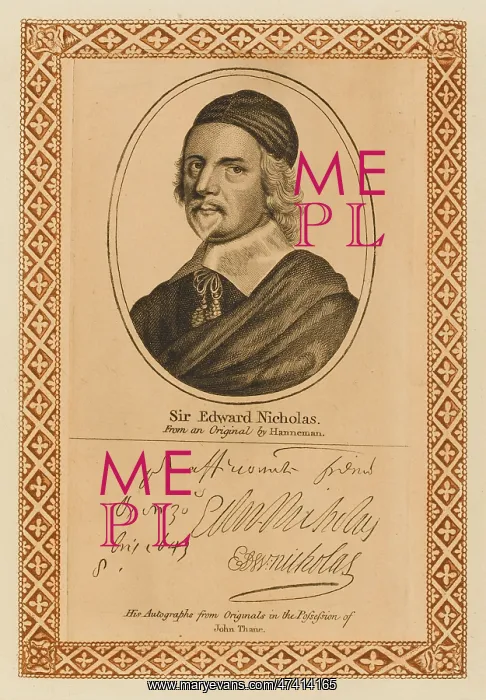 ME
PL
Sir Edward Nicholas.
From an Original by Hanneman.
ME
PL
Edw. Nicholas
Edw nicholas
His Autographs from Originals in the Poſseſsion of
John Thane.
www.maryevans.com/47414165